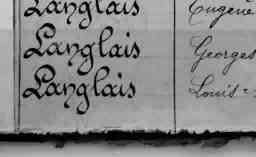 Langlais Eugène
Langlais Georges
Langlais Louis